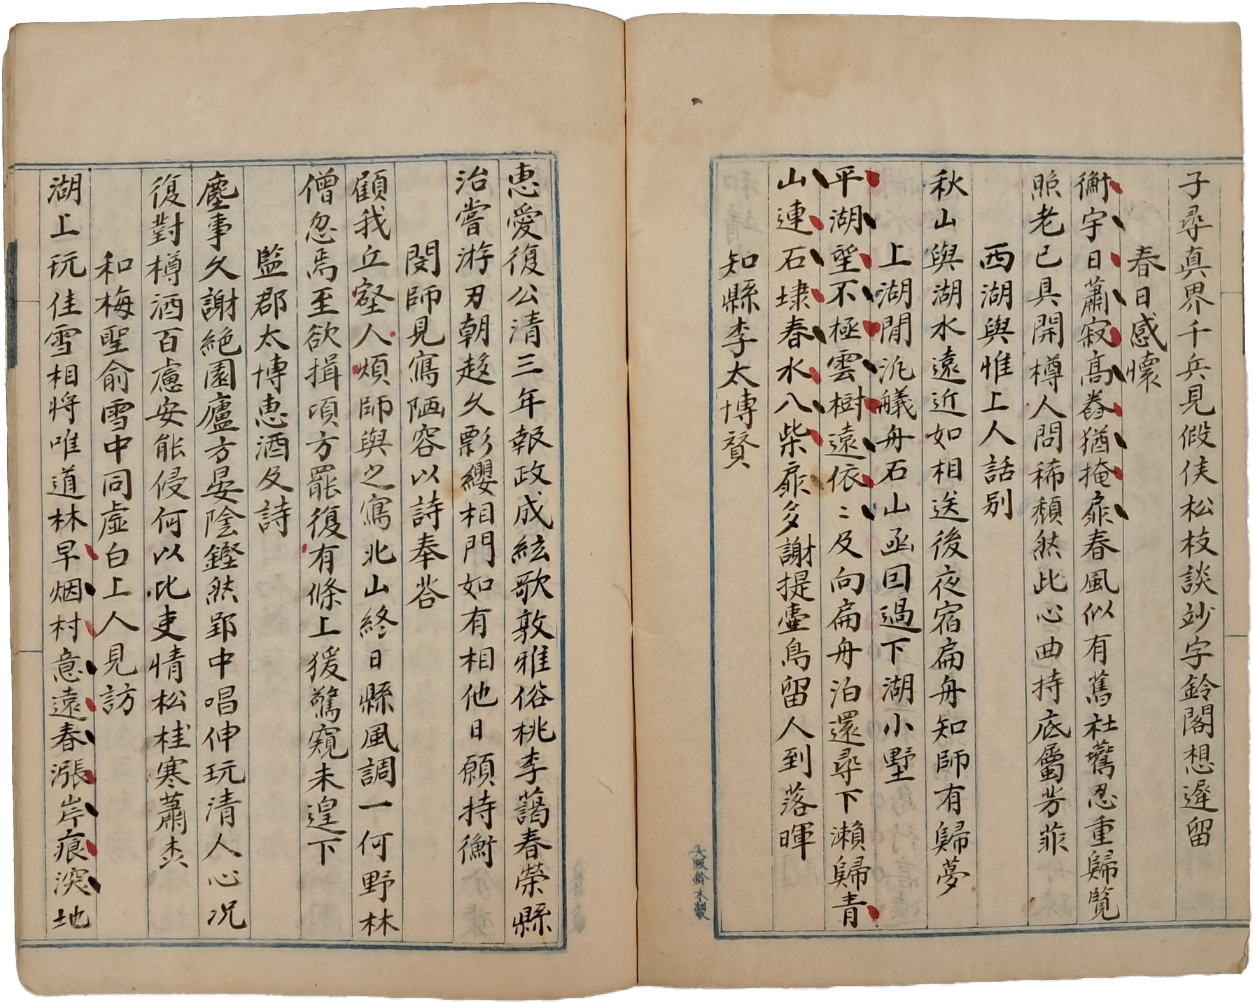 子尋真界千兵見假侯松枝談妙字鈴閣想遲留
春日感懷
衡宇日蕭寂高舂猶掩扉春風似有舊社鷰忍重歸覽
照老已具開樽人問稀頹然此心曲持底屬芳菲
西湖與惟上人話別
秋山與湖水遠近如相送後夜宿扁舟知師有歸夢
上湖閒汎艤舟石山函回過下湖小墅
平湖望不極雲樹遠依〻及向扁舟泊還尋下瀨歸青
山連石埭春水八柴扉多謝提壺鳥留人到落暉
知縣李太博替
大阪鈴木製
惠愛復公清三年報政成絃歌敦雅俗桃李藹春榮縣
治嘗游刃朝趍久影纓相門如有相他日願持衡
閔師見寫陋容以詩奉荅
顧我丘壑人煩師與之寫北山終日縣風調一何野林
僧忽焉至欲揖頃方罷復有條上猨驚窺未遑下
監郡太博惠酒及詩
塵事久謝絕園廬方晏陰鏗然郢中唱伸玩清人心况
復對樽酒百慮安能侵何以比吏情松桂寒蕭森
和梅聖俞雪中同虛白上人見訪
湖上玩佳雪相將唯道林早烟村意遠春漲岸痕深地